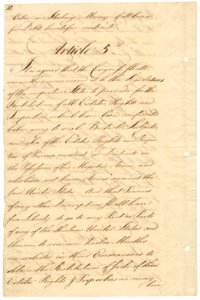 Value in Sterling Money of all bona
fide Debts heretofore contracted.
Article 5.
It is agreed that the Congress shall
earnestly recommend it to the Legislatures
of the respective States to provide for the
Restitution of all Estates, Rights and
Properties which have been confiscated
belonging to real British Subjects
and also of the Estates Rights and Proper
ties of Persons resident in Districts in
the Possession of his Majesty's Arms, and
who have not borne Arms against the
said United States. And that Persons
of any other Description shall have
free Liberty to go to any Part or Parts
of any of the thirteen United States and
therein to remain twelve Months
unmolested in their Endeavours to
obtain the Restitution of such of their
Estates Rights & Properties as may
have